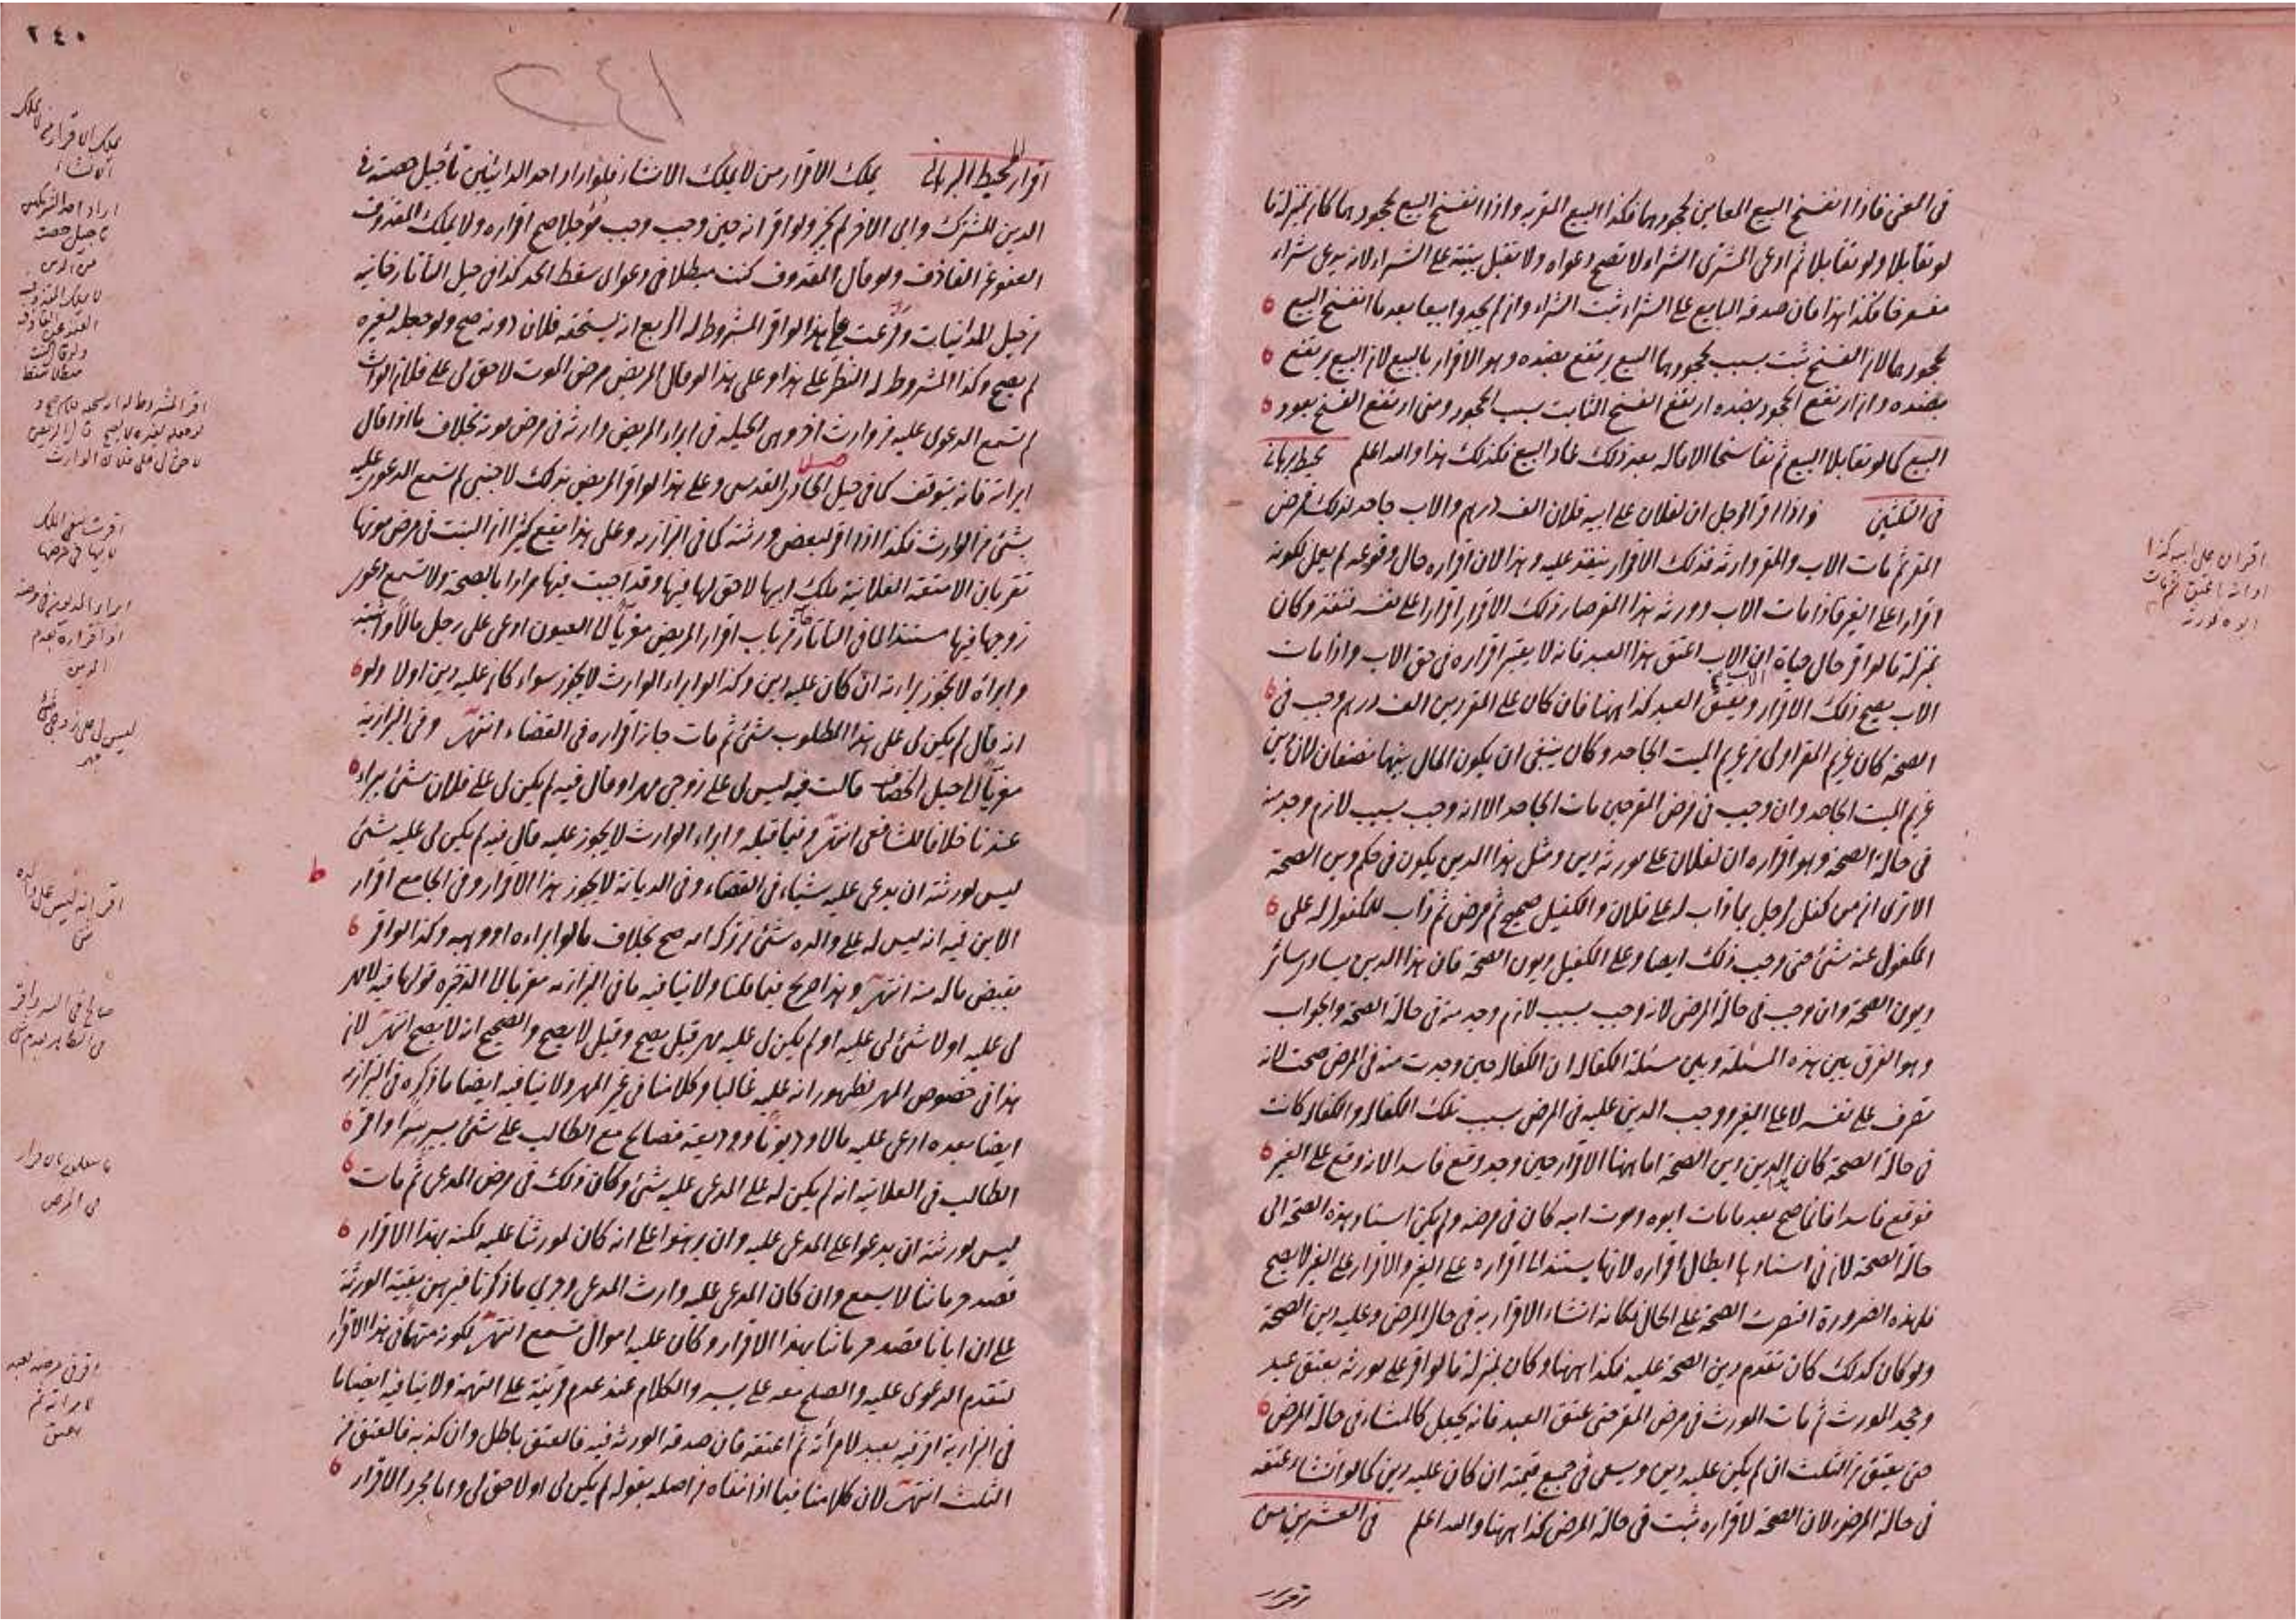 في المعنى فاذا انفسخ البيع المعاين بجحودهما فكذا البيع المقر به واذا انفسخ البيع بجحودهما كان بمنزلة ما
لو تقايلا ولو تقايلا ثم ادعى المشترى الشراء لا تصح دعواه ولا تقبل بينة على الشراء لانه يدعى شراء
مفسوخا فكذا هذا فان صدقه البايع على الشراء ثبت الشراء وان لم يجددا بيعا بعد ما انفسخ البيع
بجحودهما لان الفسخ ثبت بسبب جحودهما البيع يرتفع بضده وهو الاقرار بالبيع لان البيع يرتفع
بضده وان ارتفع الجحود بضده ارتفع الفسخ الثابت بسبب الجحود ومتى ارتفع الفسخ يعود
البيع كما لو تقايلا البيع ثم تفاسخا الاقاله بعد ذلك عاد البيع فكذلك هذا والله اعلم محيط برهانى
واذا اقر الرجل ان لفلان على ابيه فلان الف درهم والاب جاحد لذلك فمرض
المقر ثم مات الاب والمقر وارثه فذلك الاقرار ينفذ عليه وهذا لان اقراره حال وقوعه لم يعمل لكونه
اقرارا على الغير فاذا مات الاب وورثه هذا المقر صار ذلك الاقرار اقرارا على نفسه فنفذ وكان
بمنزلة ما لو اقر حال حياة الاب ان الاب اعتق هذا العبد فانه لا يعتبر اقراره في حق الاب واذا مات
الاب يصح ذلك الاقرار ويعتق العبد كذا ههنا فان كان على المقر دين الف درهم وجب في
الصحة كان غريم المقر اولى من غريم الميت الجاحد وكان ينبغى ان يكون المال بينهما نصفان لان دين
غريم الميت الجاحد وان وجب في مرض المقر حين مات الجاحد الا انه وجب بسبب لازم وجد منه
في حالة الصحة وهو اقراره ان لفلان على مورثه دين ومثل هذا الدين يكون في حكم دين الصحة
الا ترى ان من كفل لرجل بما ذاب له على فلان والكفيل صحيح ثم مرض ثم ذاب للمكفول له على
المكفول عنه شئ حتى وجب ذلك ايضا وعلى الكفيل ديون الصحة فان هذا الدين يساوى سائر
ديون الصحة وان وجب في حالة المرض لانه وجب بسبب لازم وجد منه في حالة الصحة والجواب
وهو الفرق بين هذه المسئلة وبين مسئلة الكفاله ان الكفاله حين وجدت منه في المرض صحت لانه
تصرف على نفسه لا على الغير ووجب الدين عليه في المرض بسبب تلك الكفاله والكفاله كانت
في حالة الصحة كان الدين دين الصحة اما ههنا الاقرار حين وجد وقع فاسدا لانه وقع على الغير
فوقع فاسدا فانما صح بعد ما مات ابوه وموت ابيه كان في مرضه ولم يكن اسناد هذه الصحة الى
حالة الصحة لان في اسنادها ابطال اقراره لانها يستند الى اقراره على الغير والاقرار على الغير لا يصح
فلهذه الضرورة اقتصرت الصحة على الحال فكانه انشاء الاقرار به في حال المرض وعليه دين الصحة
ولو كان كذلك كان تقدم دين الصحة عليه فكذا ههنا وكان بمنزلة ما لو اقر على مورثه بعتق عبد
وجحد المورث ثم مات المورث في مرض المقر حتى عتق العبد فانه يجعل كالمنشاء في حالة المرض
حتى يعتق من الثلث ان لم يكن عليه دين ويسعى في جميع قيمته ان كان عليه دين كما لو انشاء عتقه
في حالة المرض لان الصحة لاقراره ثبت في حالة المرض كذا ههنا والله اعلم في العشرين من
اقرار
اقر ان على ابيه كذا
٢٤٠
٢٤١
اقرار المحيط البرهانى يملك الاقرار من لا يملك الانشاء فلو اراد احد الدائنين تأجيل حصته في
الدين المشترك وابى الاخر لم يجز ولو اقر انه حين وجب وجب مؤجلا صح اقراره ولا يملك المقذوف
العفو عن القاذف ولو قال المقذوف كنت مبطلا في دعواى سقط الحد كذا في حيل التاتارخانيه
من حيل المداينات وفرعت على هذا لو اقر المشروط له الريع انه يستحقه فلان دونه صح ولو جعله لغيره
لم يصح وكذا المشروط له النظر على هذا وعلى هذا لو قال المريض مرض الموت لا حق لى على فلان الوارث
لم تسمع الدعوى عليه من وارث اخر وهى الحيله في ابراء المريض وارثه في مرض موته بخلاف ما اذا قال
ابراته فانه يتوقف كما في حيل الحاوى القدسى وعلى هذا لو اقر المريض بذلك لاجنبى لم تسمع الدعوى عليه
بشئ من الوارث فكذا اذا اقر لبعض ورثته كما في البزازيه وعلى هذا يقع كثيرا ان البنت في مرض موتها
تقر بان الامتعة الفلانية ملك ابيها لا حق لها فيها وقد اجبت فيها مرارا بالصحة ولا تسمع دعوى
زوجها فيها مستندا لما في التاتارخانيه من باب اقرار المريض معزيا الى العيون ادعى على رجل مالا واثبته
وابراه لا يجوز براءته ان كان عليه دين وكذا لو ابراء الوارث لا يجوز سواء كان عليه دين اولا ولو
انه قال لم يكن لى على هذا المطلوب شئ ثم مات جاز اقراره في القضاء انتهى وفي البزازية
معزيا الى حيل الخصاف قالت فيه ليس لى على زوجى مهر او قال فيه لم يكن لى على فلان شئ يبراء
عندنا خلافا للشافعى انتهى وفيما قبله وابراء الوارث لا يجوز عليه قال فيه لم يكن لى عليه شئ
ليس لورثته ان يدعى عليه شياء في القضاء وفي الديانة لا يجوز هذا الاقرار وفي الجامع اقرار
الابن فيه انه ليس له على والده شئ من تركة امه صح بخلاف ما لو ابراءه او وهبه وكذا لو اقر
بقبض ماله منه انتهى وهذا صريح فيما قلنا ولا ينافيه ما في البزازيه معزيا الى الذخيره قولها فيه لا مهر
لى عليه او لا شئ لى عليه او لم يكن لى عليه مهر قيل يصح وقيل لا يصح والصحيح انه لا يصح انتهى لان
هذا في خصوص المهر لظهور انه عليه غالبا وكلامنا في غير المهر ولا ينافيه ايضا ما ذكره في البزازيه
ايضا بعده ادعى عليه مالا وديونا ووديعة فصالح مع الطالب على شئ يسير سرا واقر
الطالب في العلانيه انه لم يكن له على المدعى عليه شئ وكان ذلك في مرض المدعى ثم مات
ليس لورثته ان يدعوا على المدعى عليه وان برهنوا على انه كان لمورثنا عليه لكنه بهذا الاقرار
قصد حرماننا لا يسمع وان كان المدعى عليه وارث المدعى وجرى ما ذكرنا فبرهن بقية الورثة
على ان ابانا قصد حرماننا بهذا الاقرار وكان عليه اموال تسمع انتهى لكونه متهما في هذا الاقرار
لتقدم الدعوى عليه والصلح معه على يسير والكلام عند عدم قرينة على التهمة ولا ينافيه ايضا ما
في البزازية اقر فيه بعبد لامرأته ثم اعتقه فان صدقه الورثه فيه فالعتق باطل وان كذبه فالعتق من
الثلث انتهى لان كلامنا فيما اذا نفاه من اصله بقوله لم يكن لى او لا حق لى واما مجرد الاقرار
يملك الاقرار من لا يملك
الانشاء
اراد احد الشريكين
تاجيل حصته
من الدين
لا يملك المقذوف
العفو عن القاذف
اقر المشروط له انه يستحقه فلان صح و
لو جعله لغيره لا يصح قال المريض
لا حق لى على فلان الوارث
ليس لى على زوجى
مهر
اقر انه ليس على والده
شئ